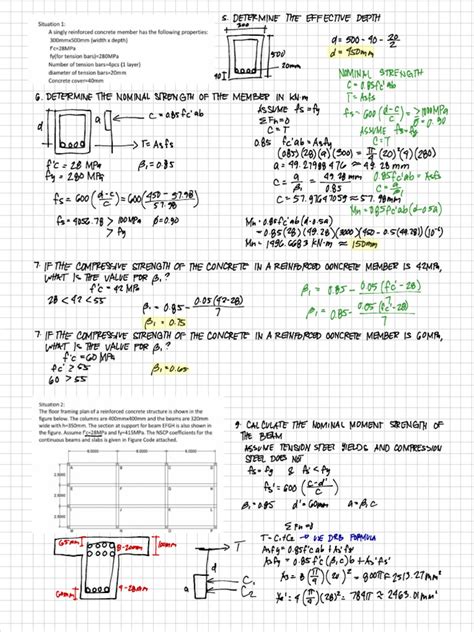 Situation 1:
A singly reinforced concrete member has the following properties:
300mmx500mm (width x depth)
f'c=28MPa
fy(for tension bars)=280MPa
Number of tension bars=4pcs (1 layer)
diameter of tension bars=20mm
Concrete cover=40mm
5. DETERMINE THE EFFECTIVE DEPTH
500
40
20mm
d = 500 - 40 - 20/2
d = 450mm
6. DETERMINE THE NOMINAL STRENGTH OF THE MEMBER IN kN·m
d
a
C = 0.85 fc'ab
T = Asfs
f'c = 28 MPa
β₁ = 0.85
fy = 280 MPa
ASSUME fs = fy
ΣFh = 0
C = T
0.85 fc'ab = Asfy
(0.85)(28)(a)(300) = π/4 (20)²(4)(280)
a = 49.27984876 ≈ 49.28 mm
c = a/β₁ = 49.28 mm/0.85
c = 57.97629059 ≈ 57.98mm
NOMINAL STRENGTH
C = 0.85 fc'ab
T = Asfs
fs = 600 (d-c/c)
ASSUME fs = fy
C = T
0.85 fc'ab = Asfy
c = a/β₁
Mn = 0.85fc'ab (d-0.5a)
fs = 600 (d-c/c) = 600 (450 - 57.98/57.98)
fs = 4056.78 > 1000MPa
> fy
Ø=0.90
Mn = 0.85fc'ab (d-0.5a)
= 0.85(28)(49.28)(300)(450-0.5(49.28))(10⁻⁶)
7. IF THE COMPRESSIVE STRENGTH OF THE CONCRETE IN A REINFORCED CONCRETE MEMBER IS 42MPa,
WHAT IS THE VALUE FOR β₁?
f'c = 42 MPa
28 < 42 < 55
β₁ = 0.85 - 0.05(42-28)/7
β₁ = 0.75
β₁ = 0.85 - 0.05 (fc' - 28)/7
7. IF THE COMPRESSIVE STRENGTH OF THE CONCRETE IN A REINFORCED CONCRETE MEMBER IS 60MPa,
WHAT IS THE VALUE FOR β₁?
f'c = 60 MPa
f'c ≥ 55
60 > 55
β₁ = 0.65
Situation 2:
The floor framing plan of a reinforced concrete structure is shown in the
figure below. The columns are 400mmx400mm and the beams are 320mm
wide with h=350mm. The section at support for beam EFGH is also shown in
the figure. Assume f'c=28MPa and fy=415MPa. The NSCP coefficients for the
continuous beams and slabs is given in Figure Code attached.
9. CALCULATE THE NOMINAL MOMENT STRENGTH OF
THE BEAM
ASSUME TENSION STEEL YIELDS AND COMPRESSION
STEEL DOES NOT
fs = fy & fs' < fy
fs' = 600 (c-d'/c)
β₁ = 0.85 d' = 60mm a = β₁c
ΣFh = 0
T = C₁+C₂
Asfy = 0.85f'c ab + As'fs'
Asfy = 0.85f'c (β₁c)b + As'fs'
As = 8 (π/4)(20)² = 800π ≈ 2513.27mm²
As' = 4 (π/4)(28)² = 784π ≈ 2463.01mm²
65mm
8-20mm
100mm
60mm
4-28mm
T
d
a
C₁
C₂